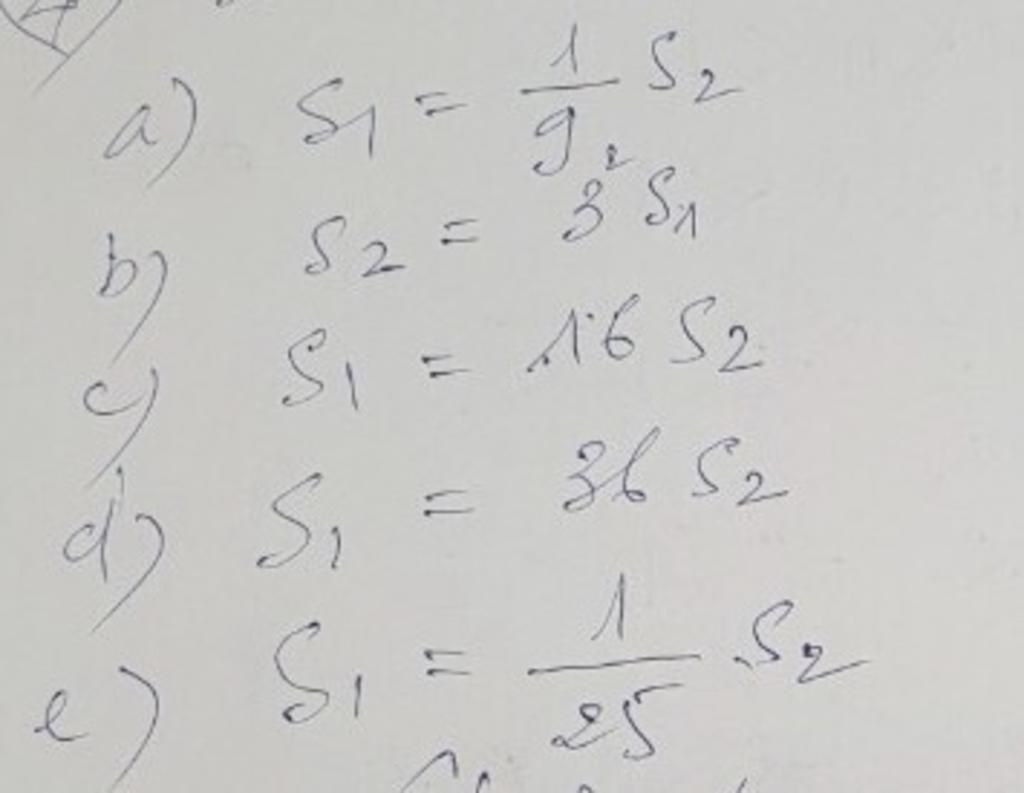 a) S₁ = 1/9 S₂
b) S₂ = 3² S₁
c) S₁ = 16 S₂
d) S₁ = 36 S₂
e) S₁ = 1/25 S₂